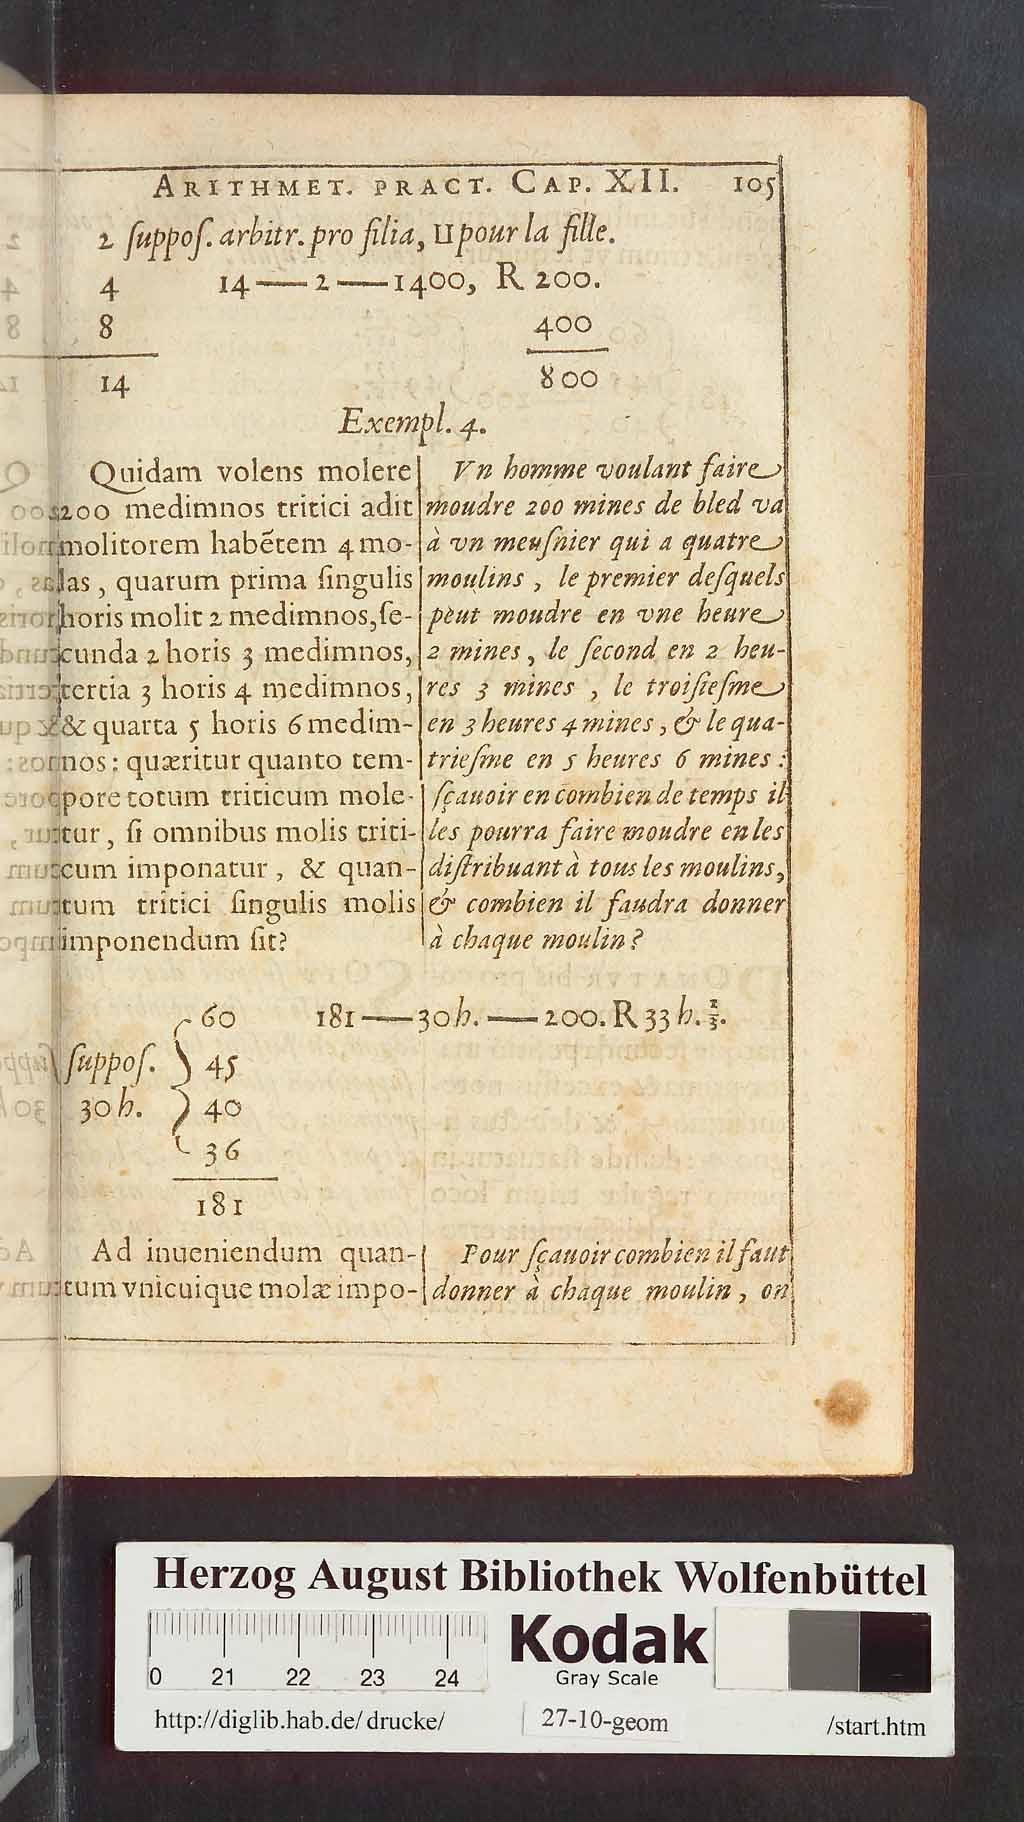 ARITHMET. PRACT. CAP. XII. 105
2 ſuppoſ. arbitr. pro filia, II pour la fille.
4 14 — 2 — 1400, R 200.
8 400
14 800
Exempl. 4.
Quidam volens molere
200 medimnos tritici adit
molitorem habẽtem 4 mo-
las, quarum prima ſingulis
horis molit 2 medimnos, ſe-
cunda 2 horis 3 medimnos,
tertia 3 horis 4 medimnos,
& quarta 5 horis 6 medim-
nos: quæritur quanto tem-
pore totum triticum mole-
tur, ſi omnibus molis triti-
cum imponatur, & quan-
tum tritici ſingulis molis
imponendum ſit?
Vn homme voulant faire
moudre 200 mines de bled va
à vn meuſnier qui a quatre
moulins, le premier deſquels
peut moudre en vne heure
2 mines, le ſecond en 2 heu-
res 3 mines, le troiſieſme
en 3 heures 4 mines, & le qua-
trieſme en 5 heures 6 mines:
ſçauoir en combien de temps il
les pourra faire moudre en les
diſtribuant à tous les moulins,
& combien il faudra donner
à chaque moulin?
60 181 — 30 h. — 200. R 33 h. 2/3.
ſuppoſ. 45
30 h. 40
36
181
Ad inueniendum quan-
tum vnicuique molæ impo-
Pour ſçauoir combien il faut
donner à chaque moulin, on
Herzog August Bibliothek Wolfenbüttel
0 21 22 23 24
Kodak
Gray Scale
http://diglib.hab.de/drucke/ 27-10-geom /start.htm